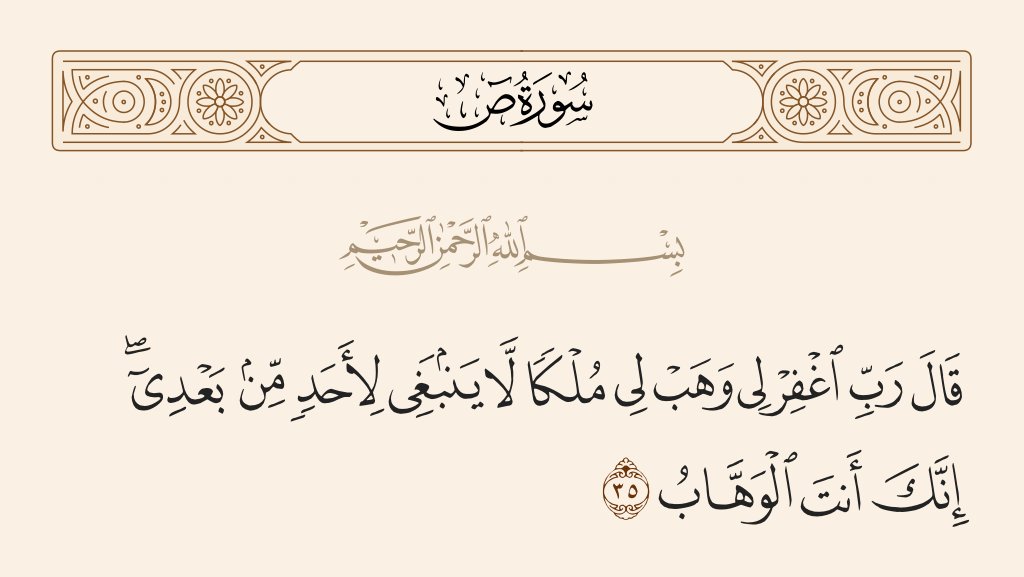 سُورَةُ صٓ
بِسْمِ ٱللَّهِ ٱلرَّحْمَٰنِ ٱلرَّحِيمِ
قَالَ رَبِّ ٱغْفِرْ لِى وَهَبْ لِى مُلْكًا لَّا يَنۢبَغِى لِأَحَدٍ مِّنۢ بَعْدِىٓ ۖ
إِنَّكَ أَنتَ ٱلْوَهَّابُ ٣٥